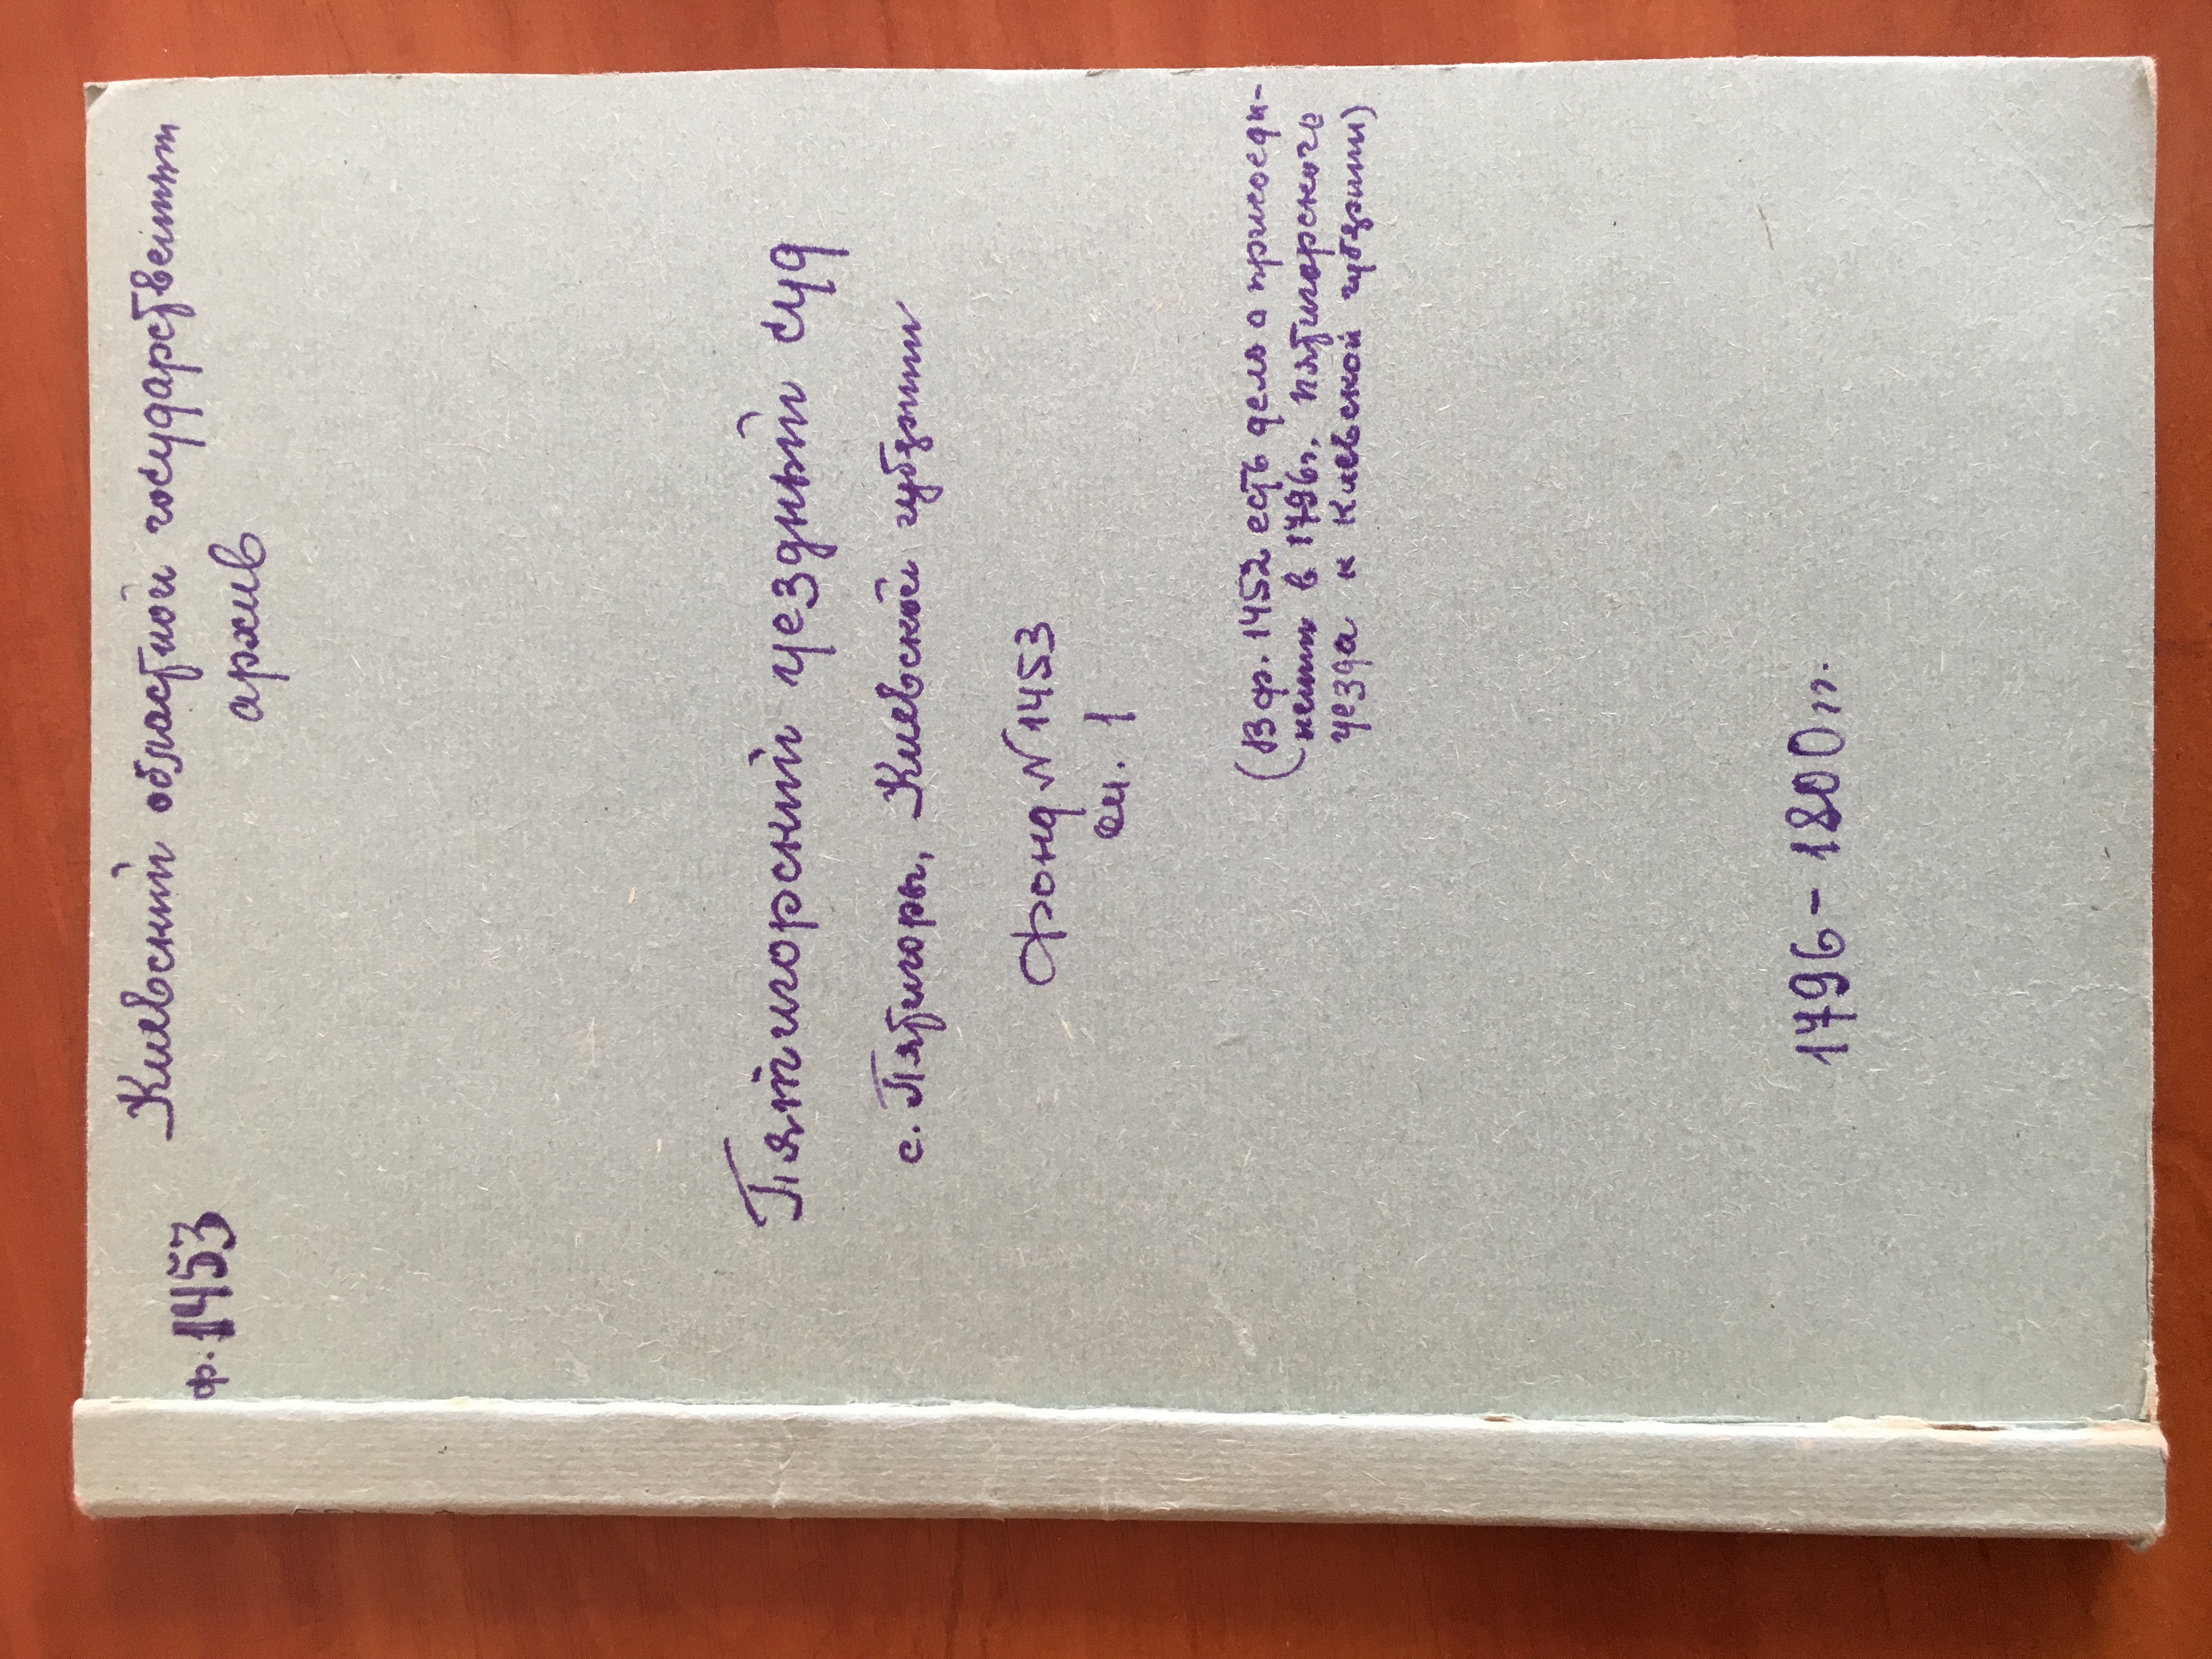 ф. 1453 Киевский областной государственный
архив
Пятигорский уездный суд
с. Пятигоры, Киевской губернии
Фонд №1453
оп. 1
(В ф. 1452 есть дело о присоеди-
нении в 1796г. пятигорского
уезда к Киевской губернии)
1796-1800гг.